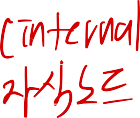 Cinternal
자식노드